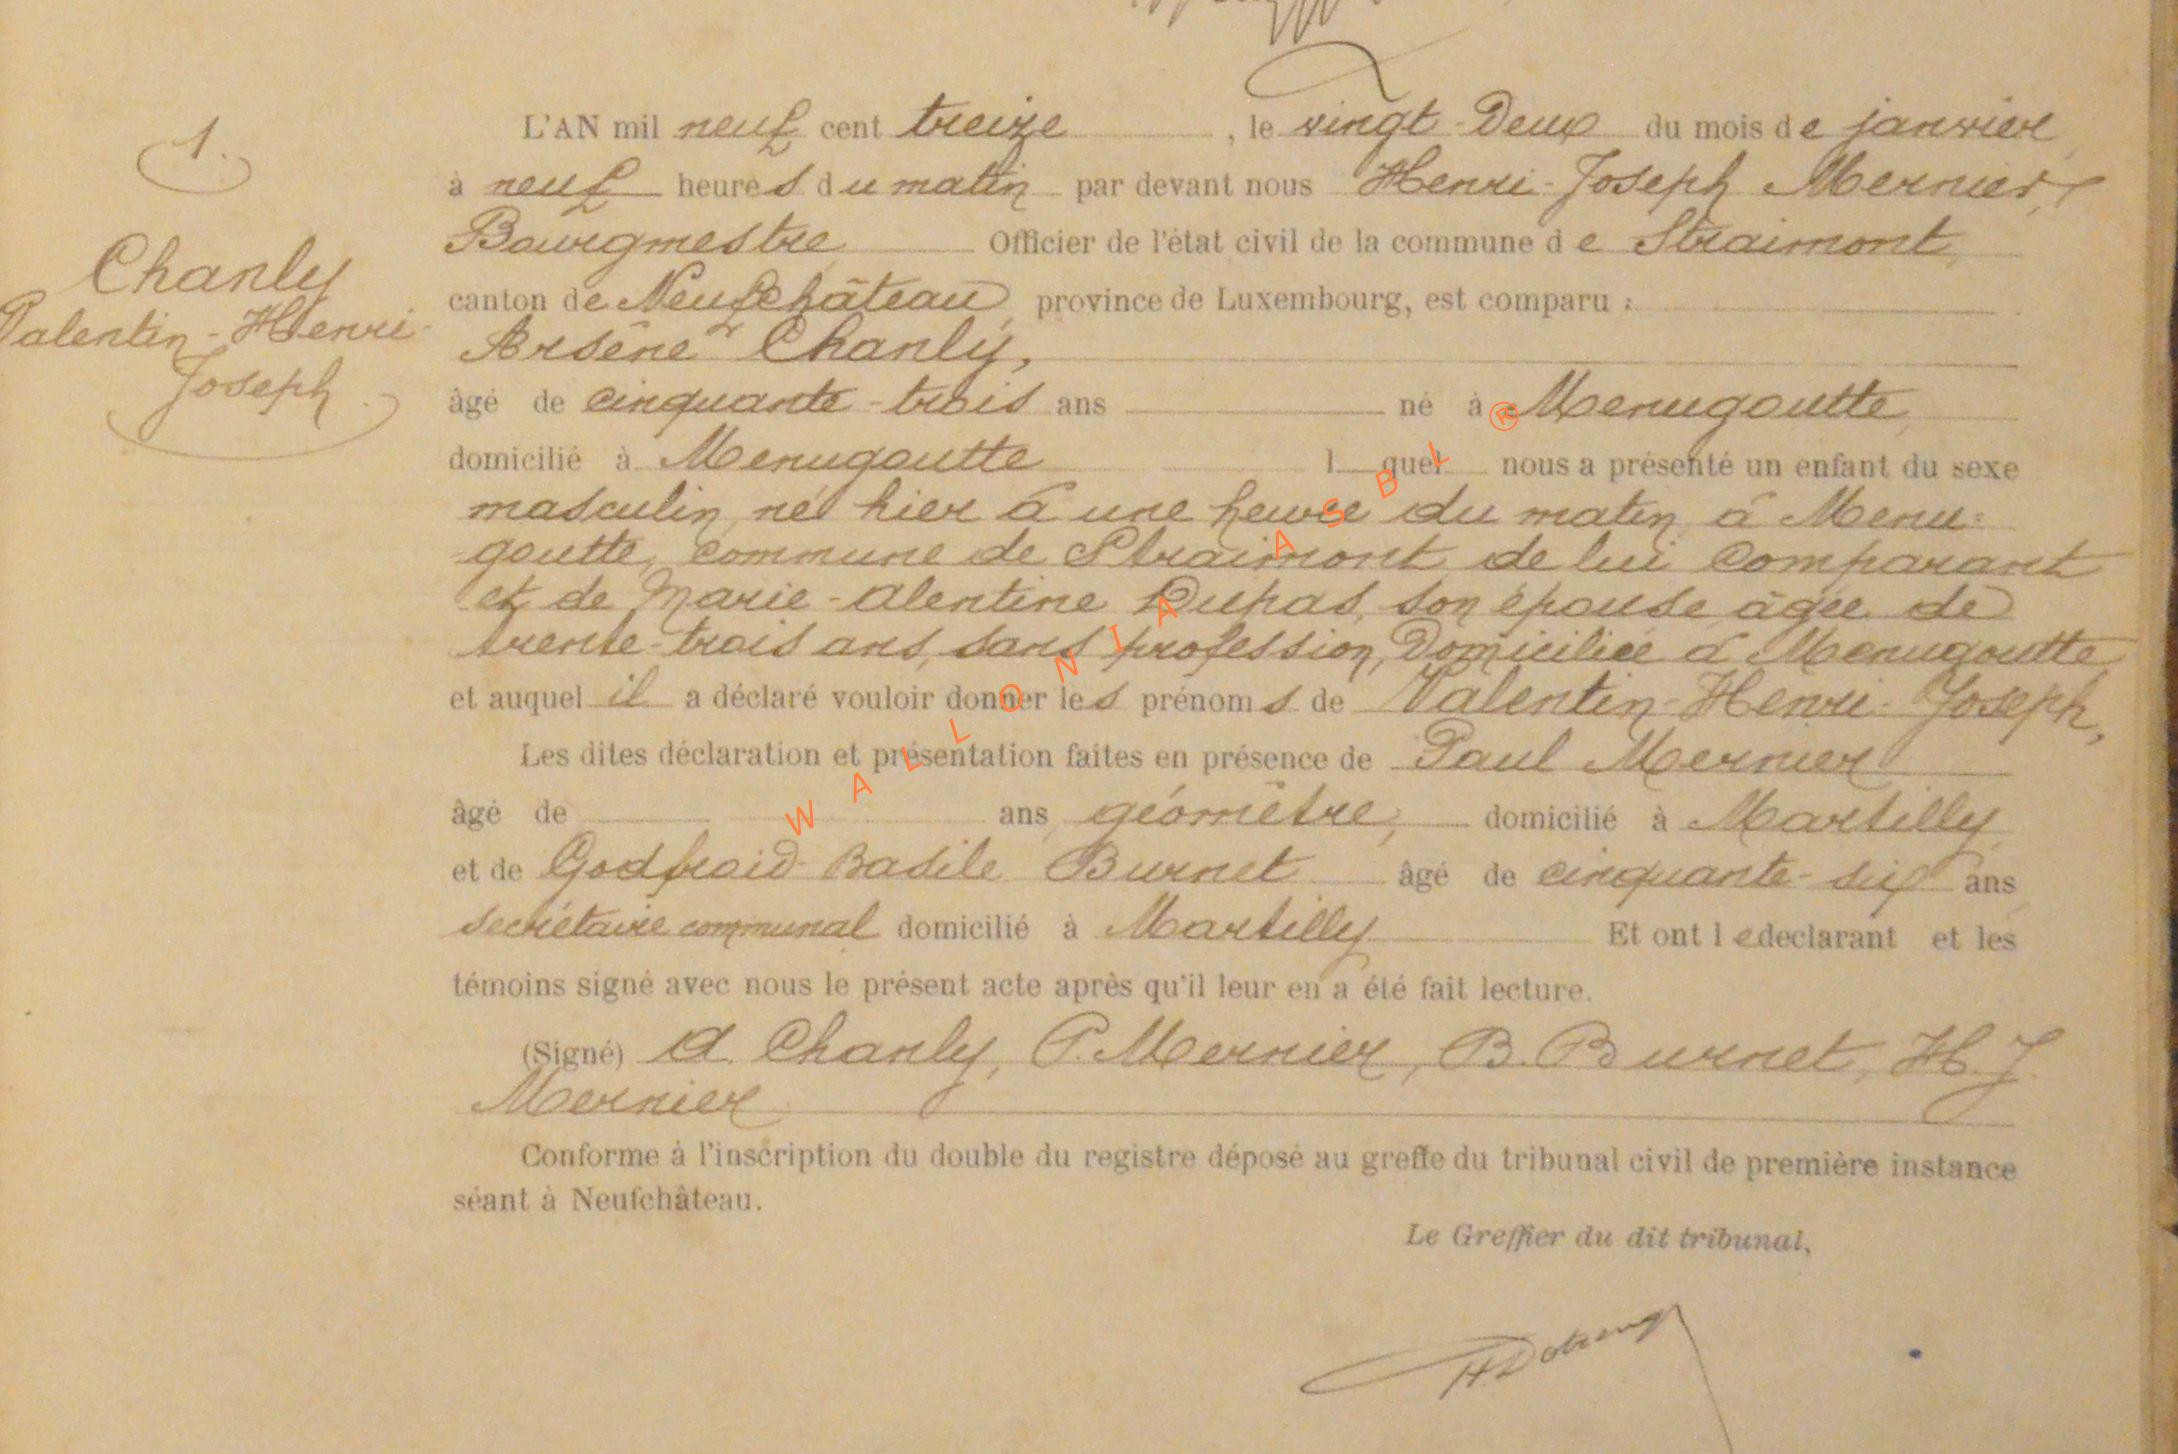 1.
Chanly
Valentin-Henri-
Joseph.
L'AN mil neuf cent treize, le vingt-Deux du mois de janvier,
à neuf heures du matin par devant nous Henri-Joseph Mernier,
Bourgmestre Officier de l'état civil de la commune de Straimont,
canton de Neufchâteau, province de Luxembourg, est comparu :
Arsène Chanly,
âgé de cinquante-trois ans né à Menugoutte,
domicilié à Menugoutte l quel nous a présenté un enfant du sexe
masculin, né hier à une heure du matin, à Menu=
goutte, commune de Straimont, de lui comparant
et de Marie-Alentine Dupas, son épouse, âgée de
trente-trois ans, sans profession, Domiciliée à Menugoutte,
et auquel il a déclaré vouloir donner les prénoms de Valentin-Henri-Joseph,
Les dites déclaration et présentation faites en présence de Paul Mernier
âgé de ans géomètre, domicilié à Martilly,
et de Godfroid-Basile Burnet âgé de cinquante-six ans,
secrétaire communal domicilié à Martilly Et ont le declarant et les
témoins signé avec nous le présent acte après qu'il leur en a été fait lecture.
(Signé) A. Chanly, P. Mernier, B. Burnet, H. J.
Mernier.
Conforme à l'inscription du double du registre déposé au greffe du tribunal civil de première instance
séant à Neufchâteau.
Le Greffier du dit tribunal,
WALLONIA ASBL ®